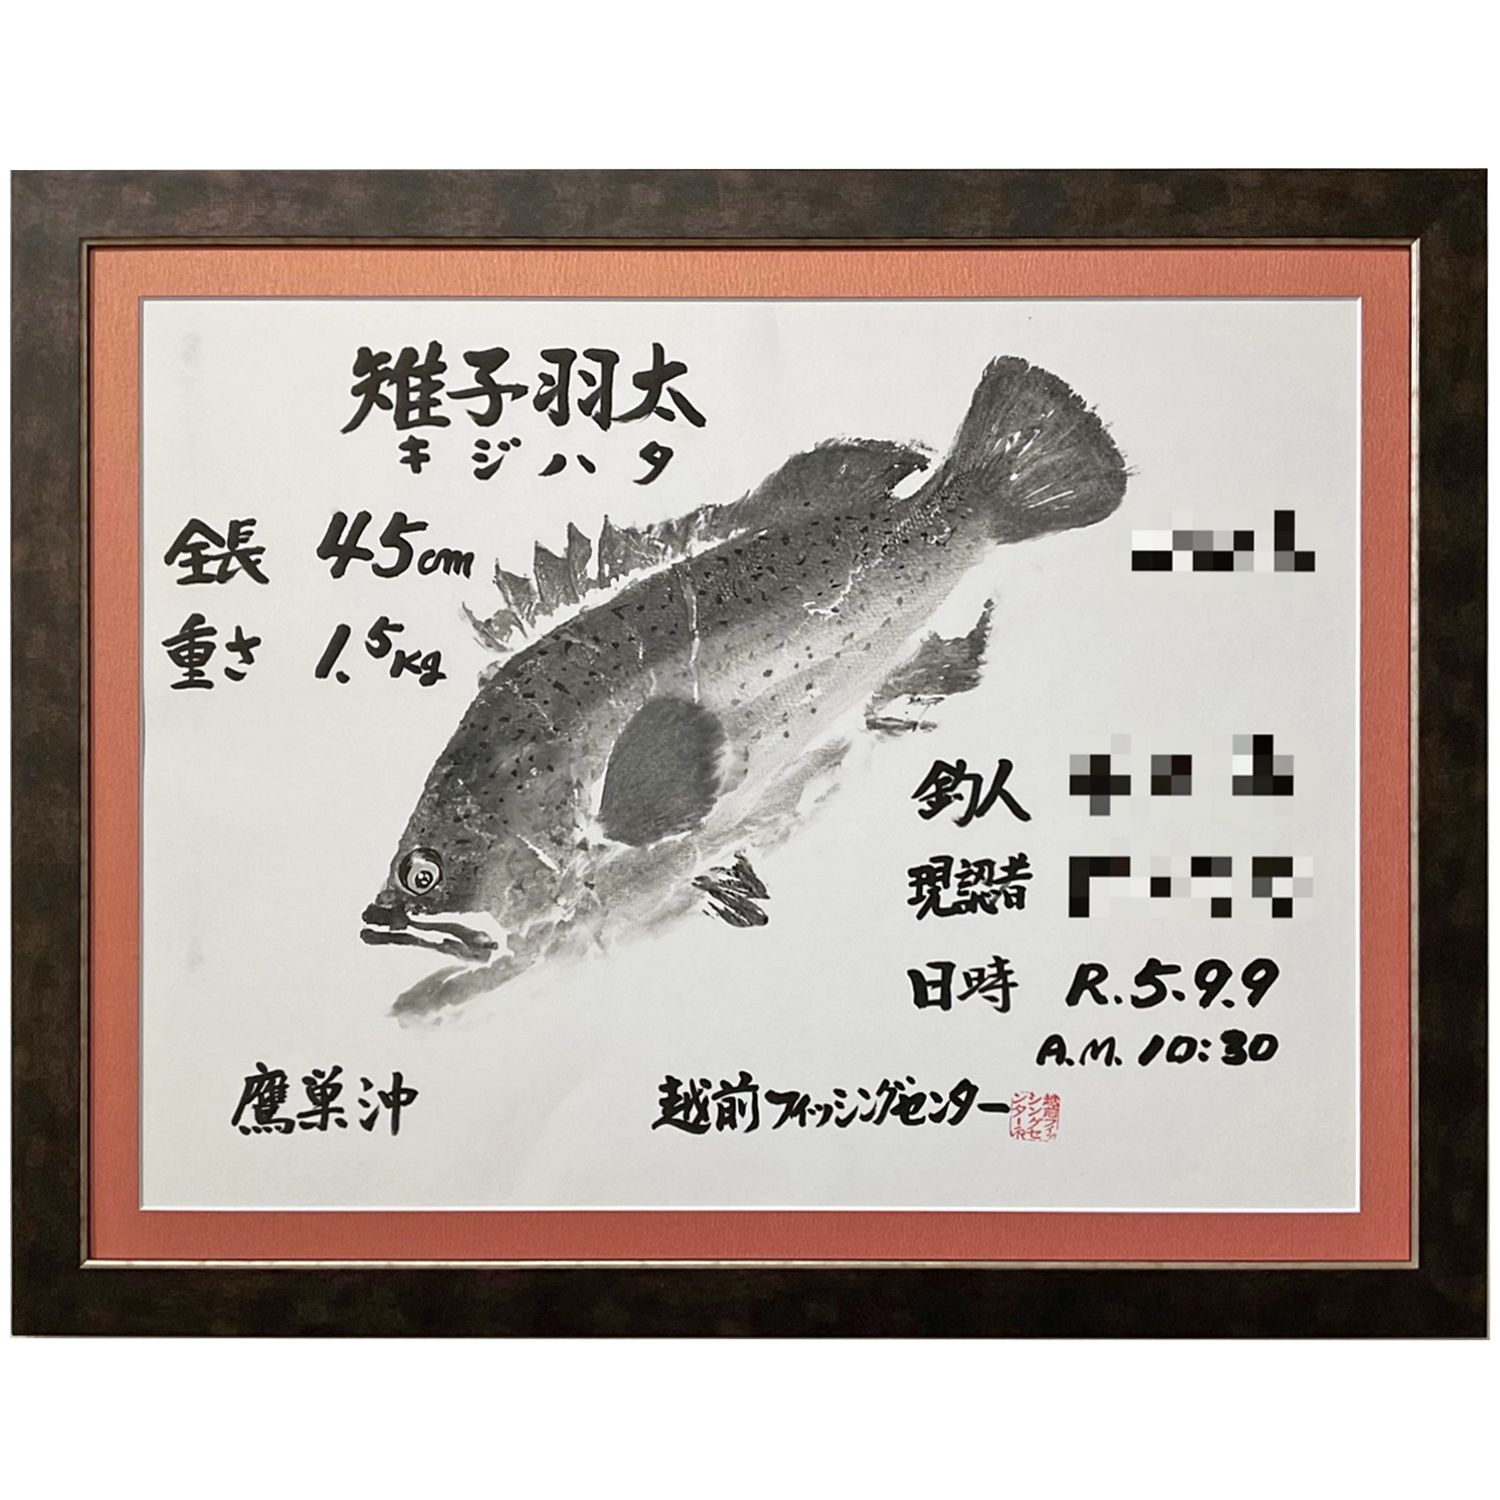 雉子羽太
キジハタ
全長 45cm
重さ 1.5kg
釣人
現認者
日時 R.5.9.9
A.M. 10:30
鷹巣沖
越前フィッシングセンター
越前フィッ
シングセ
ンター